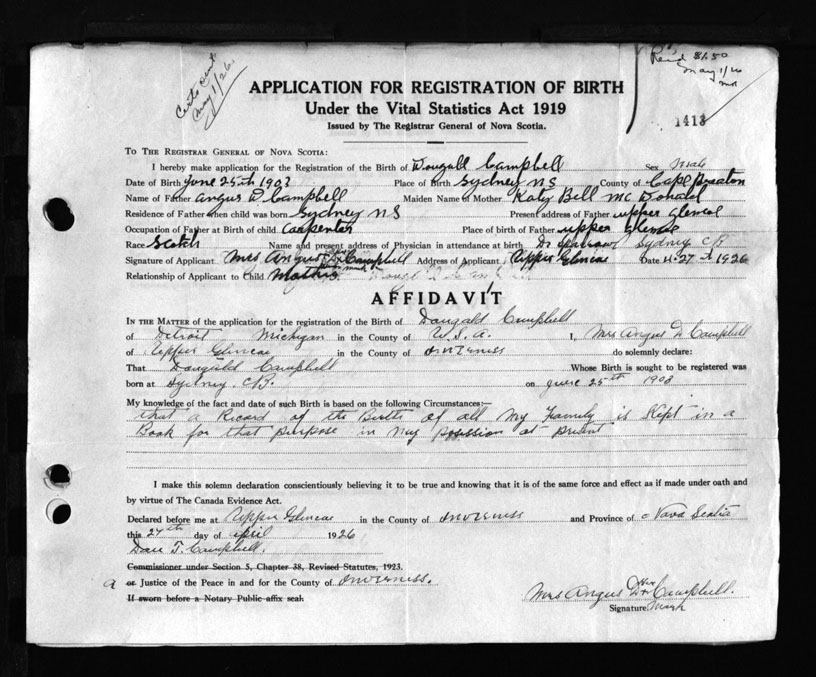 Certs sent
May 1/26.
Recd $1.50
May 1/26
1413
APPLICATION FOR REGISTRATION OF BIRTH
Under the Vital Statistics Act 1919
Issued by The Registrar General of Nova Scotia.
TO THE REGISTRAR GENERAL OF NOVA SCOTIA:
I hereby make application for the Registration of the Birth of Dougall Campbell Sex Male
Date of Birth June 25th 1903 Place of Birth Sydney NS County of Cape Breaton
Name of Father Angus D Campbell Maiden Name of Mother Katy Bell McDonald
Residence of Father when child was born Sydney NS Present address of Father upper Glencoe
Occupation of Father at Birth of child Carpenter Place of birth of Father upper Glencoe
Race Scotch Name and present address of Physician in attendance at birth Dr Sydney CB
Signature of Applicant Mrs Angus D Campbell Address of Applicant Upper Glencoe Date 4-27 1926
her X mark
Relationship of Applicant to Child Mother
AFFIDAVIT
IN THE MATTER of the application for the registration of the Birth of Dougald Campbell
of Detroit Michigan in the County of U.S.A. I, Mrs Angus D Campbell
of Upper Glencoe in the County of Inverness do solemnly declare:
That Dougald Campbell Whose Birth is sought to be registered was
born at Sydney. C.B. on June 25th 1903
My knowledge of the fact and date of such Birth is based on the following Circumstances:—
that a Record of the Births of all My Family is Kept in a
Book for that purpose in my possession at Present
I make this solemn declaration conscientiously believing it to be true and knowing that it is of the same force and effect as if made under oath and
by virtue of The Canada Evidence Act.
Declared before me at Upper Glencoe in the County of Inverness and Province of Nova Scotia
this 27th day of April 1926
Dan T. Campbell.
Commissioner under Section 5, Chapter 38, Revised Statutes, 1923.
a or Justice of the Peace in and for the County of Inverness.
If sworn before a Notary Public affix seal.
Mrs Angus D X Campbell.
Her
Signature Mark